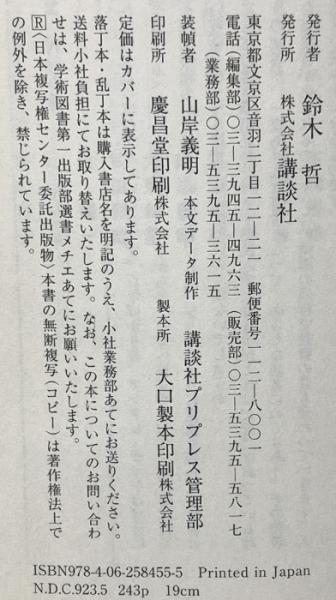 発行者 鈴木 哲
発行所 株式会社講談社
東京都文京区音羽二丁目一二―二一 郵便番号一一二―八〇〇一
電話(編集部)〇三―三九四五―四九六三(販売部)〇三―五三九五―五八一七
(業務部)〇三―五三九五―三六一五
装幀者 山岸義明 本文データ制作 講談社プリプレス管理部
印刷所 慶昌堂印刷株式会社 製本所 大口製本印刷株式会社
定価はカバーに表示してあります。
落丁本・乱丁本は購入書店名を明記のうえ、小社業務部あてにお送りください。
送料小社負担にてお取り替えいたします。なお、この本についてのお問い合わ
せは、学術図書第一出版部選書メチエあてにお願いいたします。
R〈日本複写権センター委託出版物〉本書の無断複写(コピー)は著作権法上で
の例外を除き、禁じられています。
ISBN978-4-06-258455-5 Printed in Japan
N.D.C.923.5 243p 19cm